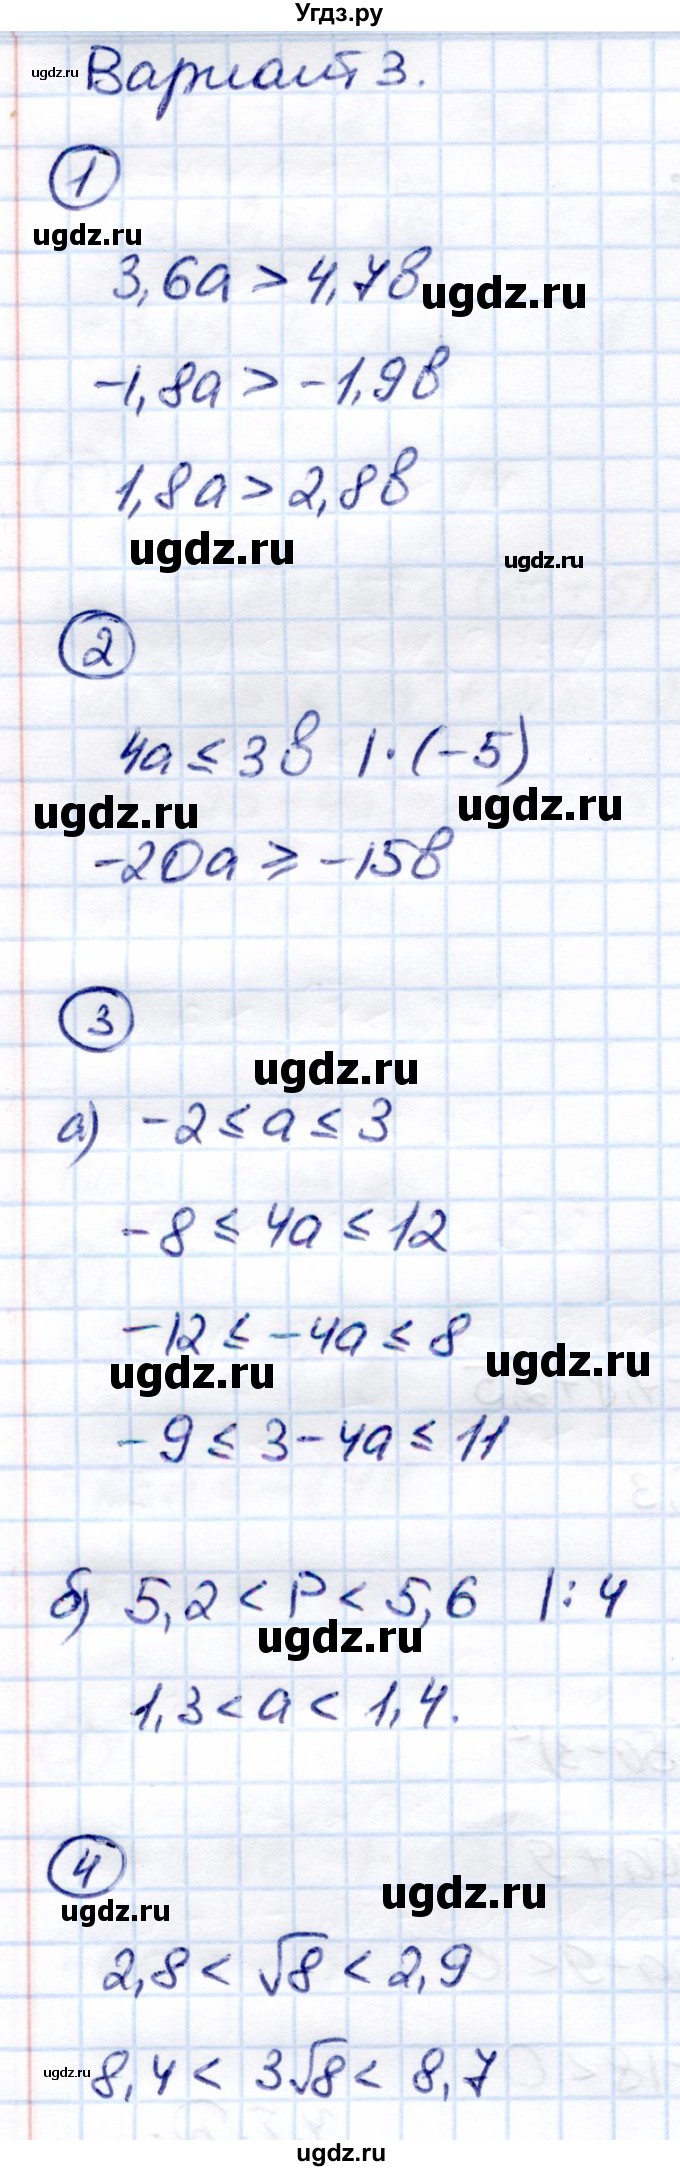 Угдз.ру
ugdz.ru Вариант 3.
1
ugdz.ru
3,6а > 4,7в ugdz.ru
-1,8а > -1,9в
1,8а > 2,8в
ugdz.ru ugdz.ru
2
4а ≤ 3в |·(-5)
ugdz.ru ugdz.ru
-20а ≥ -15в
3
ugdz.ru
а) -2 ≤ а ≤ 3
-8 ≤ 4а ≤ 12
-12 ≤ -4а ≤ 8
ugdz.ru ugdz.ru
-9 ≤ 3-4а ≤ 11
б) 5,2 < P < 5,6 |:4
ugdz.ru
1,3 < а < 1,4.
4
ugdz.ru ugdz.ru
2,8 < √8 < 2,9
ugdz.ru 8,4 < 3√8 < 8,7
ugdz.ru